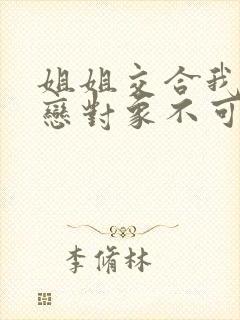 姐姐交合我
戀對象不可
李脩林